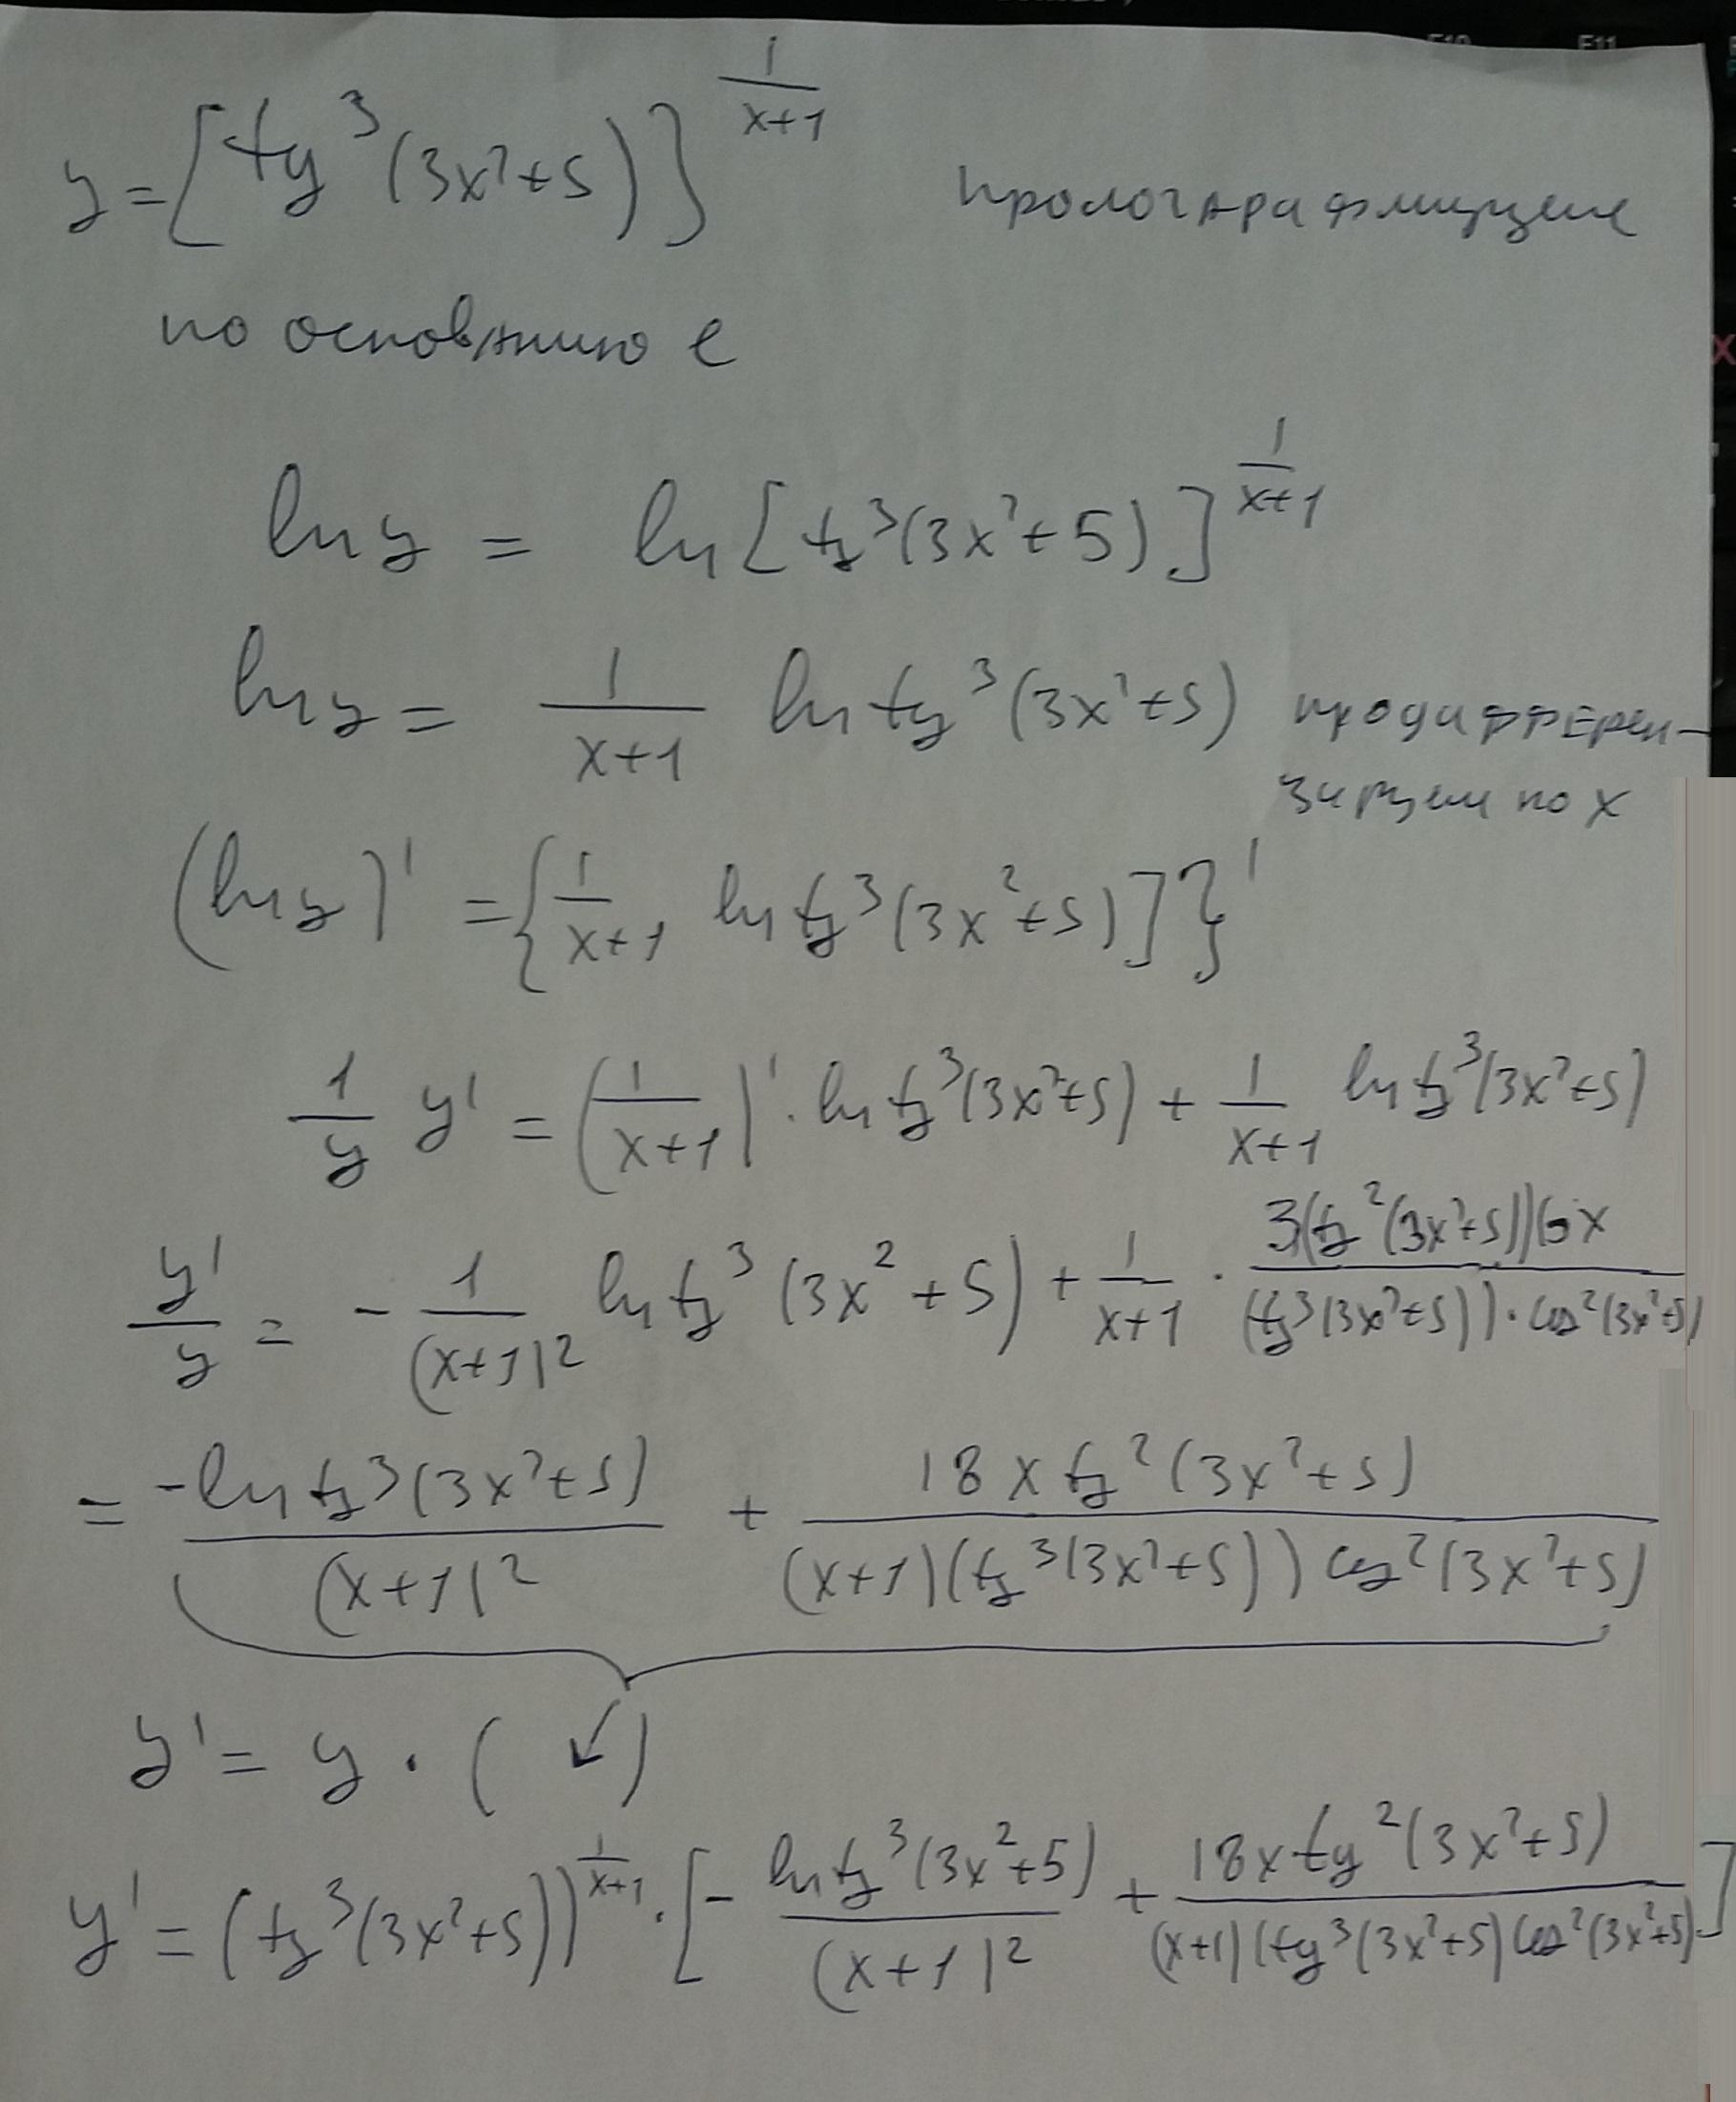 y = [tg³(3x²+5)]^{1/(x+1)} прологарафмируем
по основанию e
ln y = ln[tg³(3x²+5)]^{1/(x+1)}
ln y = 1/(x+1) ln tg³(3x²+5) продифферен-
зируем по x
(ln y)' = {1/(x+1) ln tg³(3x²+5)]}'
1/y y' = (1/(x+1))' · ln tg³(3x²+5) + 1/(x+1) ln tg³(3x²+5)
y'/y = - 1/(x+1)² ln tg³(3x²+5) + 1/(x+1) · 3(tg²(3x²+5))6x/((tg³(3x²+5)) · cos²(3x²+5))
= -ln tg³(3x²+5)/(x+1)² + 18x tg²(3x²+5)/((x+1)(tg³(3x²+5)) cos²(3x²+5))
y' = y · ( ↙ )
y' = (tg³(3x²+5))^{1/(x+1)} · [- ln tg³(3x²+5)/(x+1)² + 18x tg²(3x²+5)/((x+1)(tg³(3x²+5) cos²(3x²+5))]
F10 F11